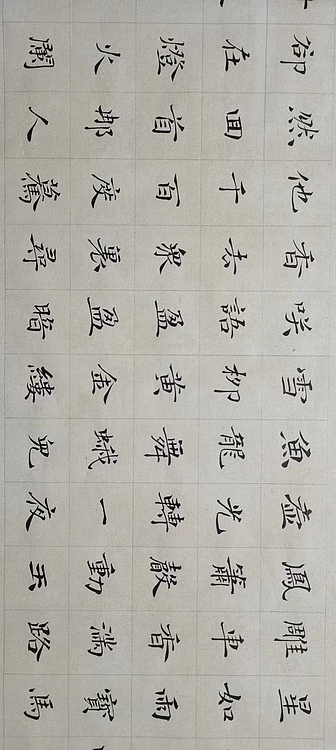 星如雨寶馬
雕車香滿路
鳳簫聲動玉
壺光轉一夜
魚龍舞蛾兒
雪柳黃金縷
咲語盈盈暗
香去衆裏尋
他千百度驀
然回首那人
卻在燈火闌